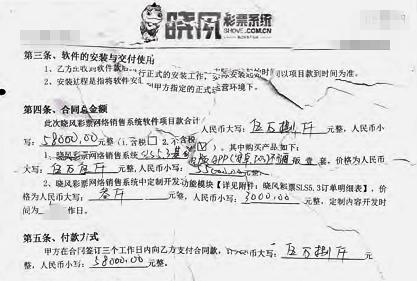 晓风彩票系统
SHOVE.COM.CN
第三条、软件的安装与交付使用
1、乙方在收到软件款后 行正式的安装工作, 实际安装起的时间以项目款到时间为准。
2、安装过程是指将软件安 到甲方指定的正式运营环境下。
第四条、合同总金额
此次晓风彩票网络销售系统软件项目款合计 人民币大写: 伍万捌仟 元整, 人民币小
写: 58000.00 元整。(1.含税 □ 2.不含税 )。其中购买产品如下:
1、晓风彩票网络销售系统SLS5.3 版 APP 版 壹 套, 价格为人民币
大写: 伍万伍仟 元整, 人民币小写: 55000.00 元整。
2、晓风彩票网络销售系统中定制开发功能模块【详见附件: 晓风彩票SLS5.3订单明细表】, 价
格为人民币大写: 叁仟 元整, 人民币小写: 3000.00 元整, 定制内容开发时
间为 工作日。
第五条、付款方式
甲方在合同签订三个工作日内向乙方支付合同款, 大写: 伍万捌仟 元
整, 人民币小写: 58000.00 元整。